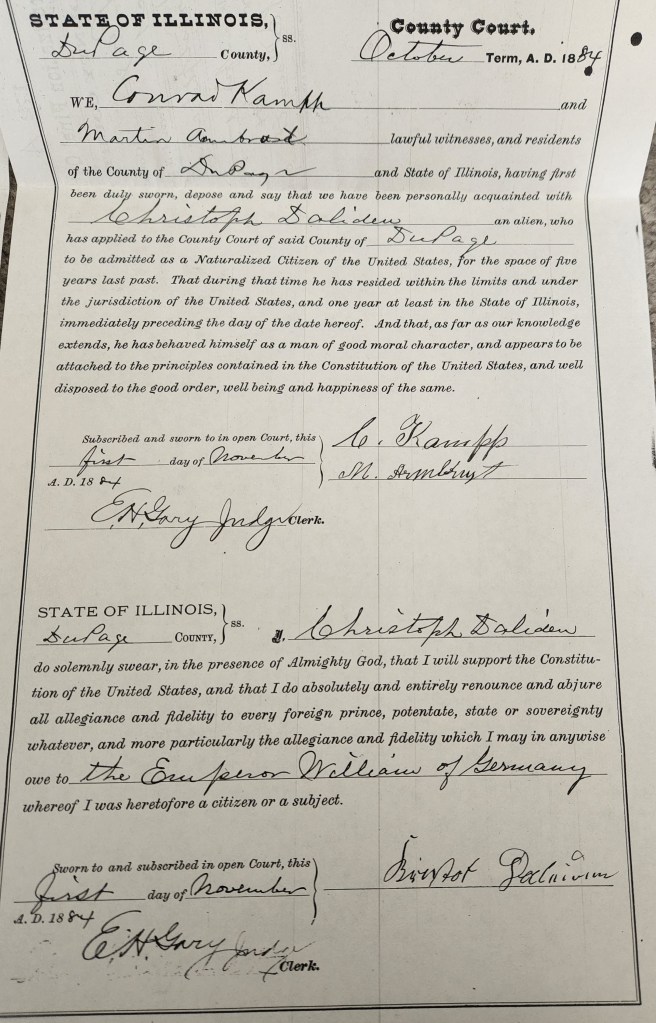 STATE OF ILLINOIS, } ss. County Court.
DuPage County, October Term, A. D. 1884
WE, Conrad Kampp and
Martin lawful witnesses, and residents
of the County of DuPage and State of Illinois, having first
been duly sworn, depose and say that we have been personally acquainted with
Christoph Daliden an alien, who
has applied to the County Court of said County of DuPage
to be admitted as a Naturalized Citizen of the United States, for the space of five
years last past. That during that time he has resided within the limits and under
the jurisdiction of the United States, and one year at least in the State of Illinois,
immediately preceding the day of the date hereof. And that, as far as our knowledge
extends, he has behaved himself as a man of good moral character, and appears to be
attached to the principles contained in the Constitution of the United States, and well
disposed to the good order, well being and happiness of the same.
Subscribed and sworn to in open Court, this
first day of November
A. D. 1884
C. Kampp
M.
E.H. Gary Judge Clerk.
STATE OF ILLINOIS, } ss.
DuPage COUNTY, I, Christoph Daliden
do solemnly swear, in the presence of Almighty God, that I will support the Constitu-
tion of the United States, and that I do absolutely and entirely renounce and abjure
all allegiance and fidelity to every foreign prince, potentate, state or sovereignty
whatever, and more particularly the allegiance and fidelity which I may in anywise
owe to the Emperor William of Germany
whereof I was heretofore a citizen or a subject.
Sworn to and subscribed in open Court, this
first day of November
A. D. 1884
E.H. Gary Judge
Clerk.